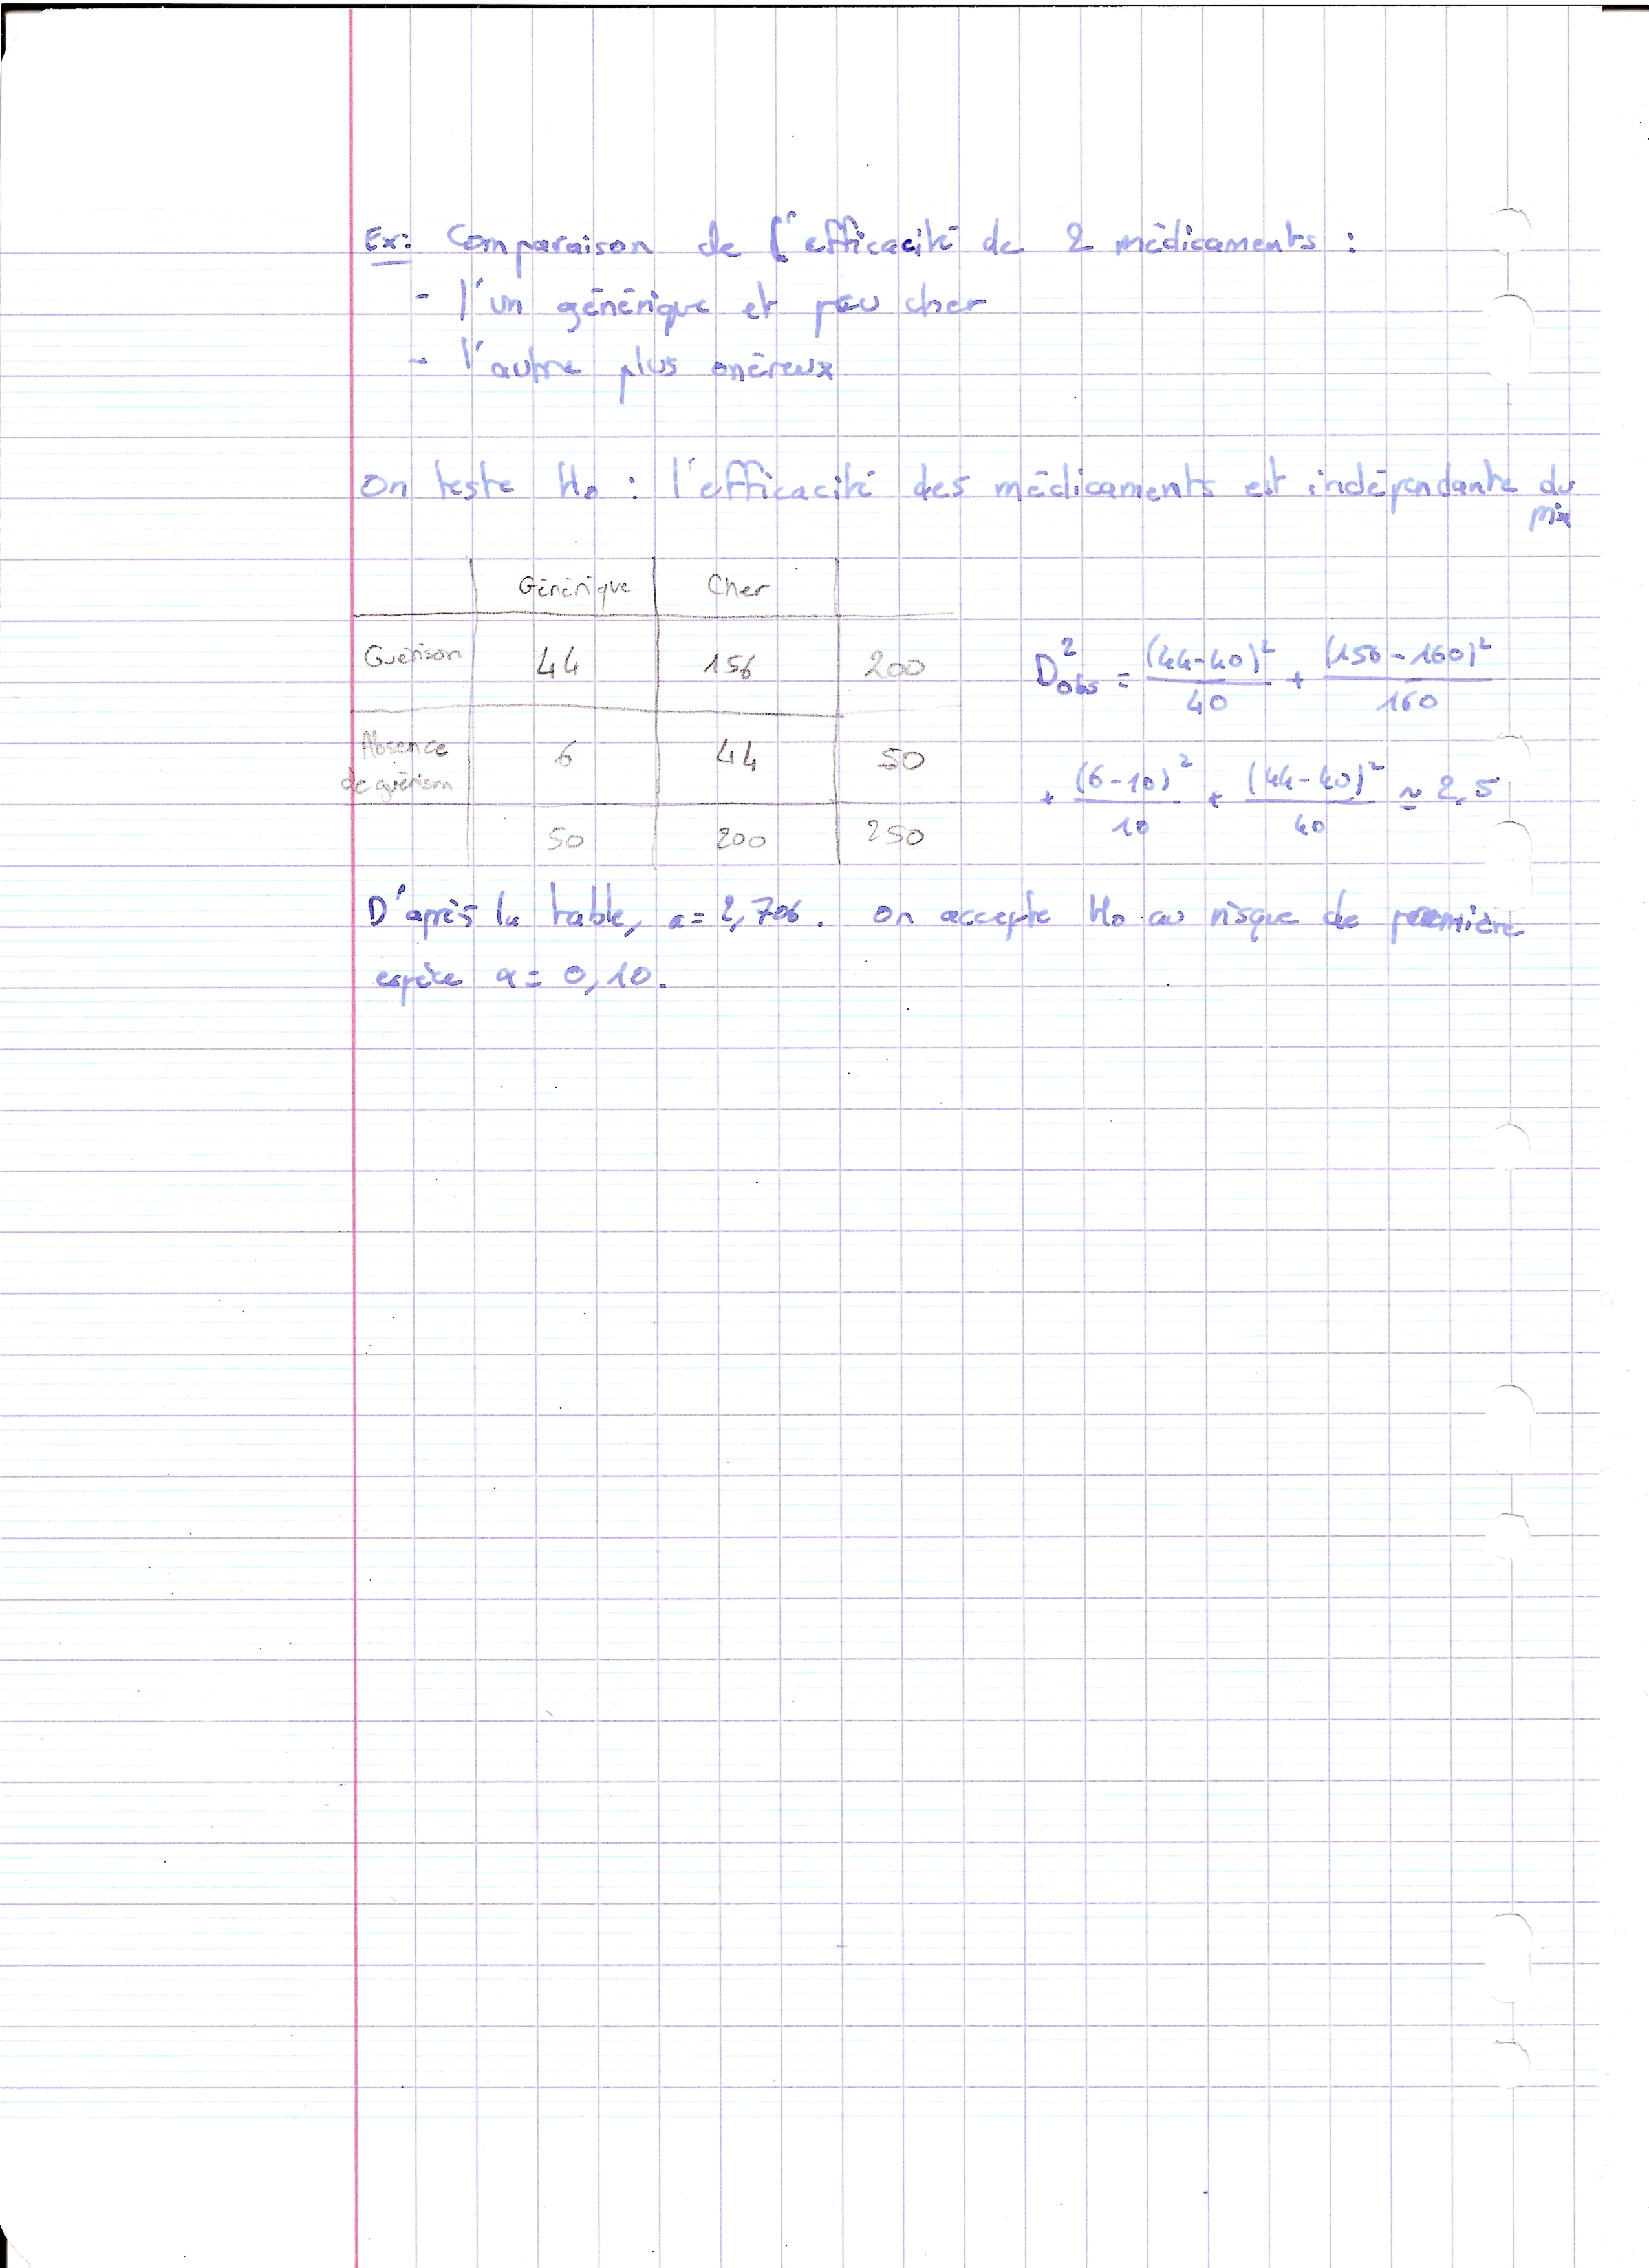 Ex: Comparaison de l'efficacité de 2 médicaments :
- l'un générique et peu cher
- l'autre plus onéreux
On teste H₀ : l'efficacité des médicaments est indépendante du
prix
Générique Cher
Guérison 44 156 200
Absence de guérison 6 44 50
50 200 250
D²obs = (44-40)²/40 + (156-160)²/160
+ (6-10)²/10 + (44-40)²/40 ≃ 2,5
D'après la table, a = 2,706. On accepte H₀ au risque de première
espèce α = 0,10.